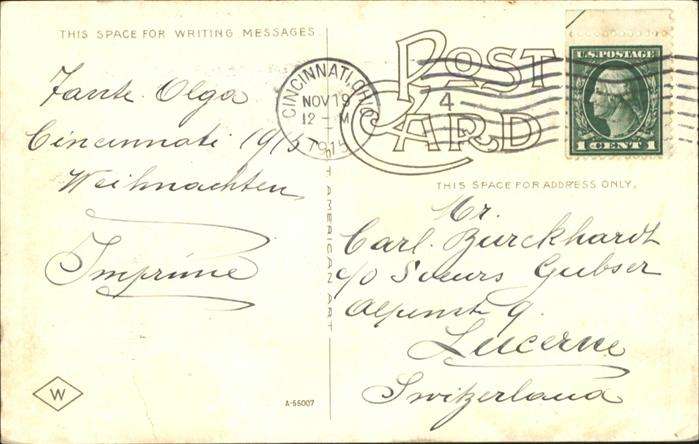 THIS SPACE FOR WRITING MESSAGES
Tante Olga
Cincinnati 1915
Weihnachten
Imprimé
W
A-55007
AMERICAN ART
CINCINNATI, OHIO
NOV 19
12 - M
1915
4
POST
CARD
U.S. POSTAGE
1 CENT 1
THIS SPACE FOR ADDRESS ONLY.
Mr.
Carl. Burckhardt
c/o Soeurs Gubser
9.
Lucerne
Switzerland